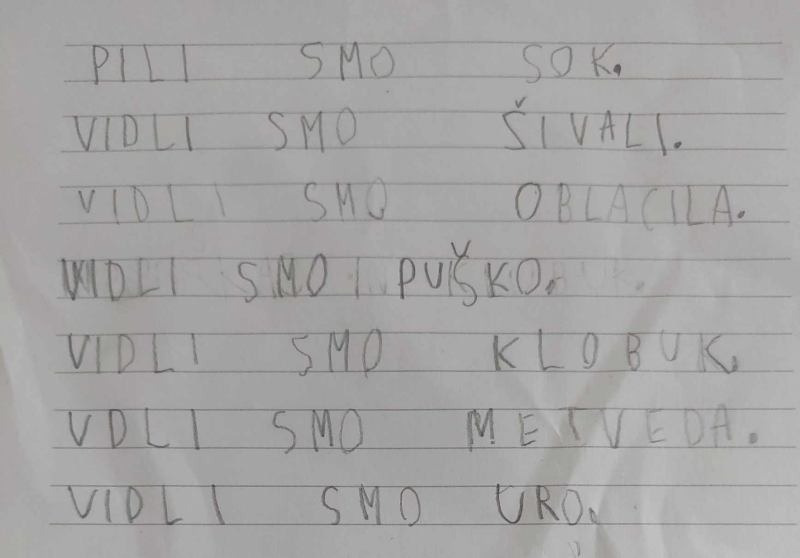 PILI SMO SOK.
VIDLI SMO ŠIVALI.
VIDLI SMO OBLACILA.
VIDLI SMO PUŠKO.
VIDLI SMO KLOBUK.
VDLI SMO METVEDA.
VIDLI SMO URO.